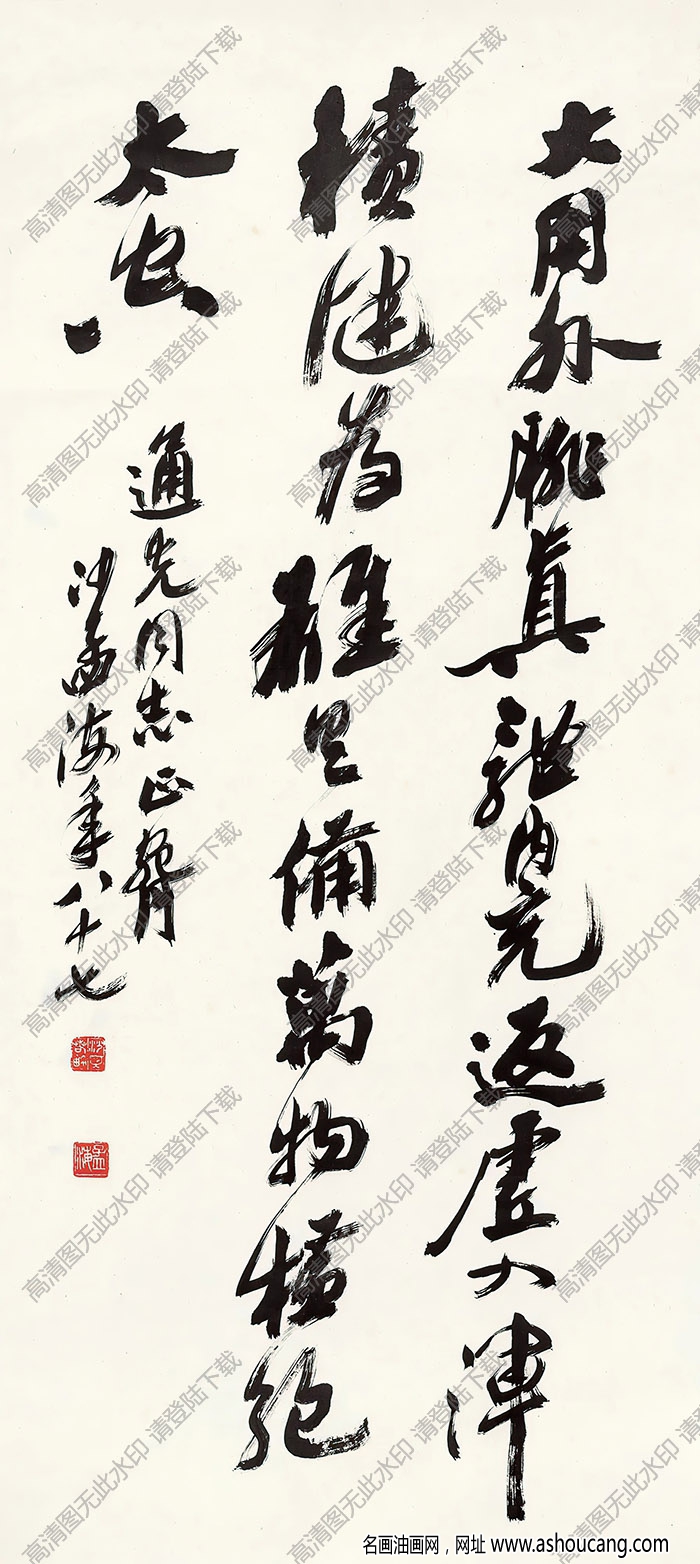 大用外腓真體内充返虛入渾
積健為雄具備萬物橫絕
太空
通先同志正
沙孟海年八十七
孟海
高清图无此水印 请登陆下载
名画油画网，网址 www.ashoucang.com